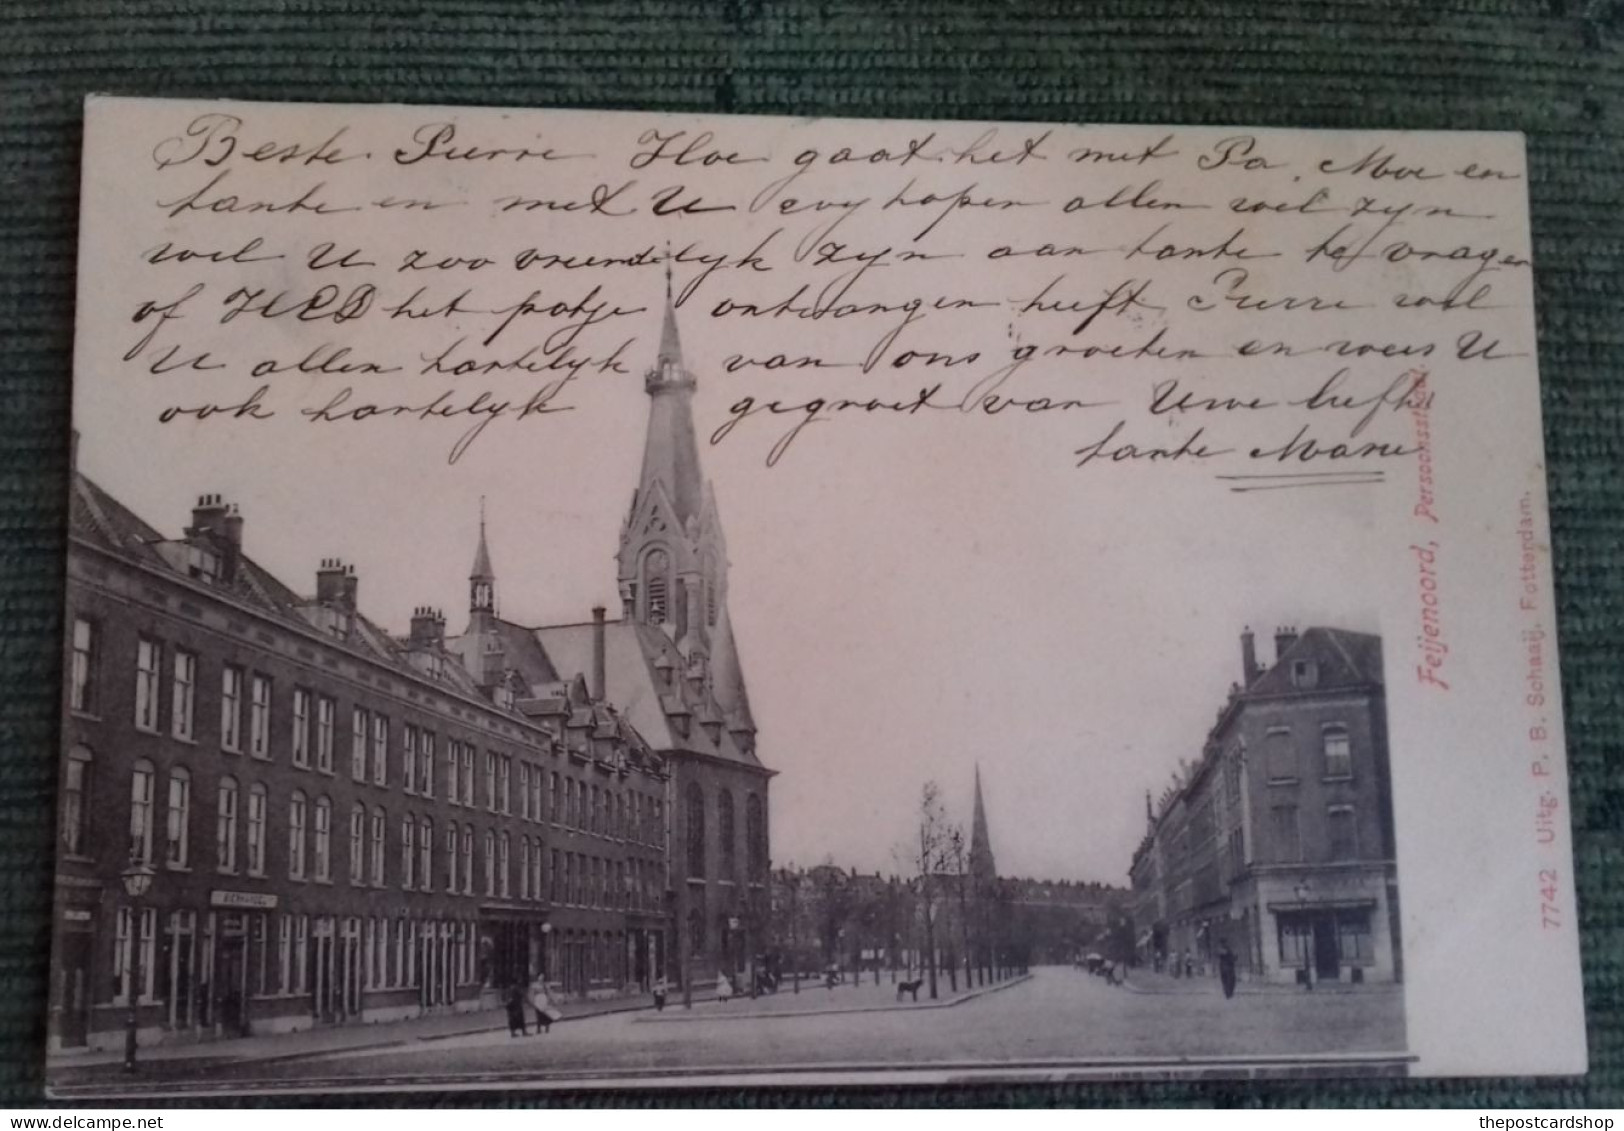 Beste Pierre Hoe gaat het met Pa, Moe en
tante en met U wy hopen allen wel zyn
wil U zoo vriendelyk zyn aan tante te vragen
of het potje ontvangen heeft Pierre wel
U allen hartelyk van ons groeten en wees U
ook hartelyk gegroet van Uwe liefh
tante Marie
Feijenoord, Persoonsstraat.
7742 Uitg. P. B. Schaaij. Fotterdam.
thepostcardshop